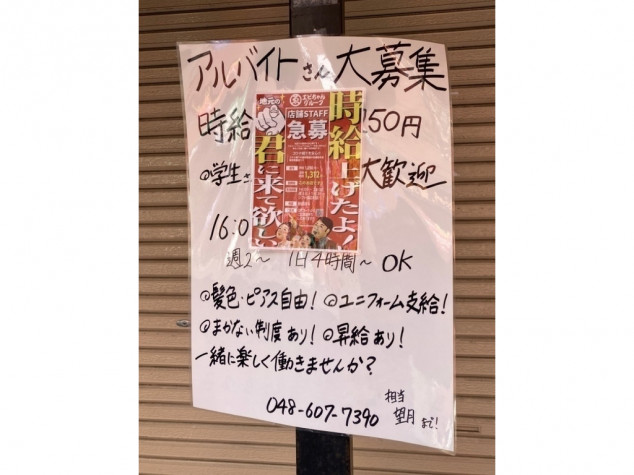 アルバイトさん大募集
時給
150円
地元の
えびちゃん
グループ
店舗STAFF
急募
時給上げたよ!
君に来て欲しい
学生さ
大歓迎
16:0
週2〜 1日4時間〜 OK
髪色・ピアス自由! ユニフォーム支給!
まかない制度あり! 昇給あり!
一緒に楽しく働きませんか?
048-607-7390
担当
望月まで!